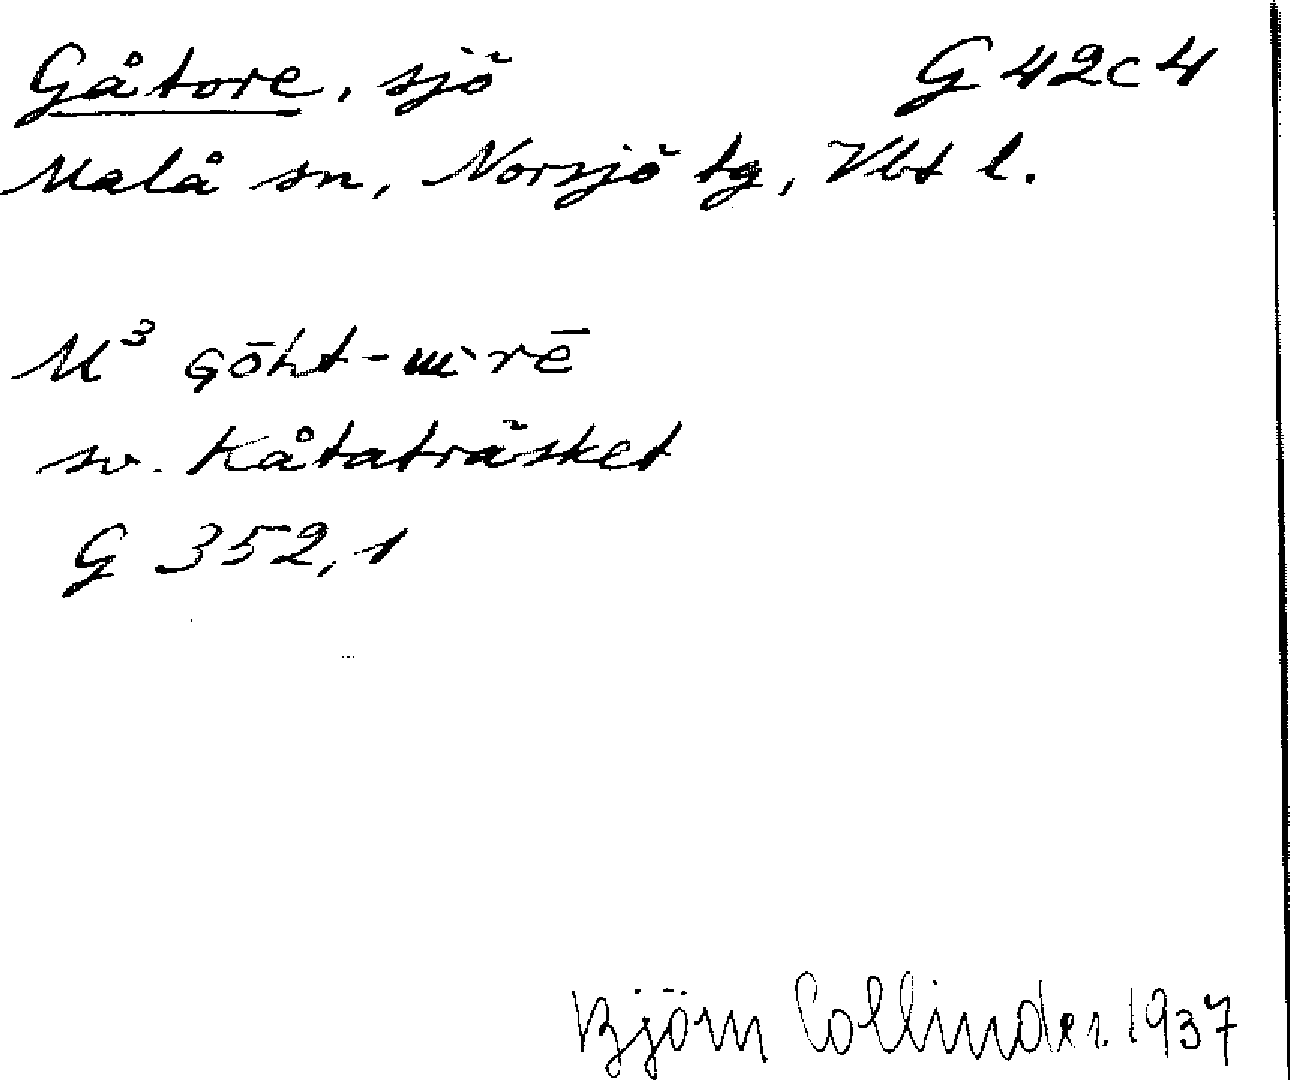 Gåtore, sjö G 42c4
Malå sn, Norsjö tg, Vbt l.
M³ Gōht-ɯ̀rē
sv. Kåtaträsket
G 352,1
Björn Collinder. 1937